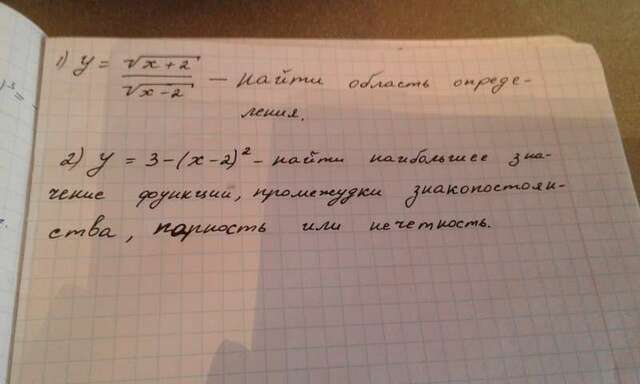 1) y = √x+2 / √x-2 – найти область опреде-
ления.
2) y = 3-(x-2)² - найти наибольшее зна-
чение функции, промежудки знакопостоян-
ства, парность или нечетность.